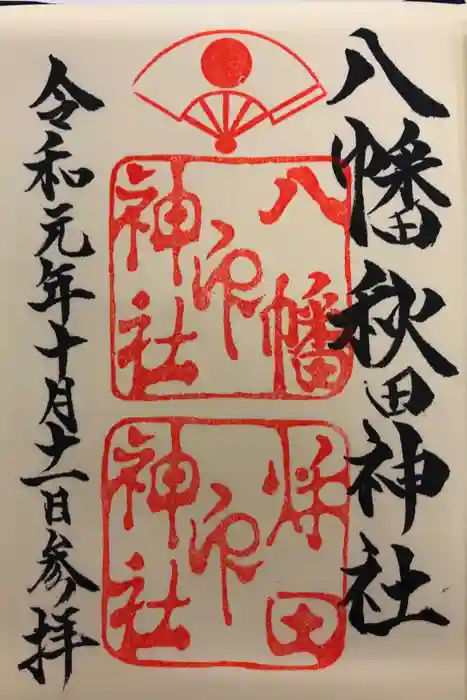 八幡秋田神社
八幡
神社
印
秋田
神社
印
令和元年十月十一日参拝